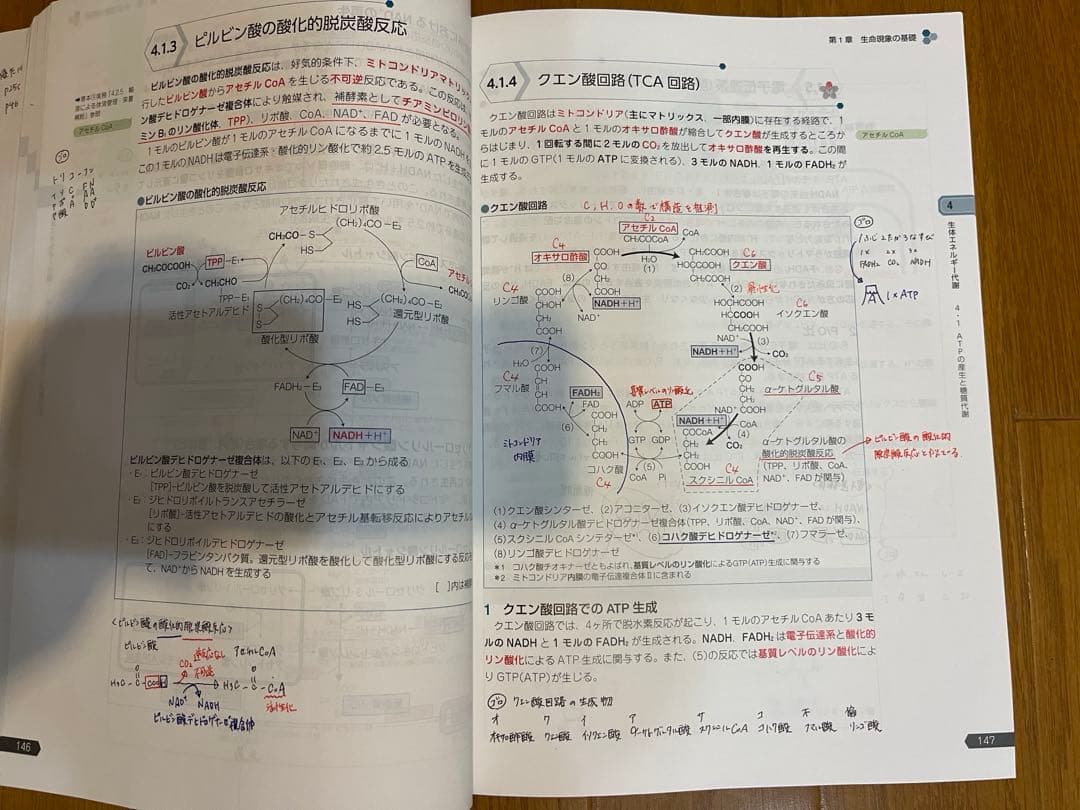 4.1.3 ピルビン酸の酸化的脱炭酸反応
ピルビン酸の酸化的脱炭酸反応は、好気的条件下、ミトコンドリアマトリッ
行したピルビン酸からアセチル CoA を生じる不可逆反応である。この反応は
酸デヒドロゲナーゼ複合体により触媒され、補酵素としてチアミンピロリン
ミン B₁ のリン酸化体、TPP)、リポ酸、CoA、NAD⁺、FAD が必要となる。
1 モルのピルビン酸が 1 モルのアセチル CoA になるまでに 1 モルの NADH を
この 1 モルの NADH は電子伝達系・酸化的リン酸化で約 2.5 モルの ATP を生
アセチル CoA
●ピルビン酸の酸化的脱炭酸反応
アセチルヒドロリポ酸
CH₃CO－S
(CH₂)₄CO－E₂
HS
ピルビン酸
CH₃COCOOH
TPP－E₁
CoA
アセチ
CO₂
CH₃CHO
CH₃CO
TPP－E₁
活性アセトアルデヒド
S
S
(CH₂)₄CO－E₂
HS
HS
(CH₂)₄CO－E₂
還元型リポ酸
酸化型リポ酸
FADH₂－E₃
FAD－E₃
NAD⁺
NADH＋H⁺
ピルビン酸デヒドロゲナーゼ複合体は、以下の E₁、E₂、E₃ から成る
・E₁：ピルビン酸デヒドロゲナーゼ
[TPP]-ピルビン酸を脱炭酸して活性アセトアルデヒドにする
・E₂：ジヒドロリポイルトランスアセチラーゼ
[リポ酸]-活性アセトアルデヒドの酸化とアセチル基転移反応によりアセチル
にする
・E₃：ジヒドロリポイルデヒドロゲナーゼ
[FAD]-フラビンタンパク質。還元型リポ酸を酸化して酸化型リポ酸にする反応
て、NAD⁺から NADH を生成する
[ ]内は補
〈ピルビン酸の酸化的脱炭酸反応〉
ピルビン酸
CO₂
逆反応なし
不可逆
アセチルCoA
H₃C－C－COOH
H₃C－C－CoA
O
O
NAD⁺
NADH
活性化
ピルビン酸デヒドロゲナーゼ複合体
146
第 1 章 生命現象の基礎
4.1.4 クエン酸回路(TCA 回路)
クエン酸回路はミトコンドリア(主にマトリックス、一部内膜)に存在する経路で、1
モルのアセチル CoA と 1 モルのオキサロ酢酸が縮合してクエン酸が生成するところか
らはじまり、1 回転する間に 2 モルの CO₂ を放出してオキサロ酢酸を再生する。この間
に 1 モルの GTP(1 モルの ATP に変換される)、3 モルの NADH、1 モルの FADH₂ が
生成する。
アセチル CoA
●クエン酸回路
C, H, Oの数で構造を推測
C₂
アセチル CoA
CH₃COCoA
CoA
H₂O
(1)
C₄
オキサロ酢酸
COOH
CO
CH₂
COOH
C₆
クエン酸
CH₂COOH
HOCCOOH
CH₂COOH
(8)
NADH＋H⁺
NAD⁺
(2)
異性化
C₄
リンゴ酸
COOH
HOCH
CH₂
COOH
C₆
イソクエン酸
HOCHCOOH
HCCOOH
CH₂COOH
NAD⁺
(3)
NADH＋H⁺
CO₂
(7)
H₂O
C₄
フマル酸
COOH
CH
CH
COOH
C₅
α-ケトグルタル酸
COOH
CO
CH₂
CH₂
COOH
基質レベルのリン酸化
FADH₂
FAD
(6)
ADP
ATP
GTP
GDP
NADH＋H⁺
NAD⁺
CoA
(4)
CO₂
COOH
CH₂
CH₂
COOH
コハク酸
C₄
(5)
CoA
Pi
COCoA
CH₂
CH₂
COOH
C₄
スクシニル CoA
ミトコンドリア
内膜
α-ケトグルタル酸の
酸化的脱炭酸反応
(TPP、リポ酸、CoA、
NAD⁺、FAD が関与)
ピルビン酸の酸化的
脱炭酸反応と似ている。
(1)クエン酸シンターゼ、(2)アコニターゼ、(3)イソクエン酸デヒドロゲナーゼ、
(4)α-ケトグルタル酸デヒドロゲナーゼ複合体(TPP、リポ酸、CoA、NAD⁺、FAD が関与)、
(5)スクシニル CoA シンテターゼ*¹、(6)コハク酸デヒドロゲナーゼ*²、(7)フマラーゼ、
(8)リンゴ酸デヒドロゲナーゼ
*1 コハク酸チオキナーゼともよばれ、基質レベルのリン酸化によるGTP(ATP)生成に関与する
*2 ミトコンドリア内膜の電子伝達複合体Ⅱに含まれる
1 クエン酸回路での ATP 生成
クエン酸回路では、4ヶ所で脱水素反応が起こり、1 モルのアセチル CoA あたり 3 モ
ルの NADH と 1 モルの FADH₂ が生成される。NADH、FADH₂ は電子伝達系と酸化的
リン酸化による ATP 生成に関与する。また、(5)の反応では基質レベルのリン酸化によ
り GTP(ATP)が生じる。
ゴロ クエン酸回路の生成物
オ ク イ ア サ コ
オキサロ酢酸 クエン酸 イソクエン酸 α-ケトグルタル酸 スクシニルCoA コハク酸 フマル酸 リンゴ酸
ゴロ
1× 2× 3×
FADH₂ CO₂ NADH
1×ATP
4
生体エネルギー代謝
4・1 ATPの産生と糖質代謝
147